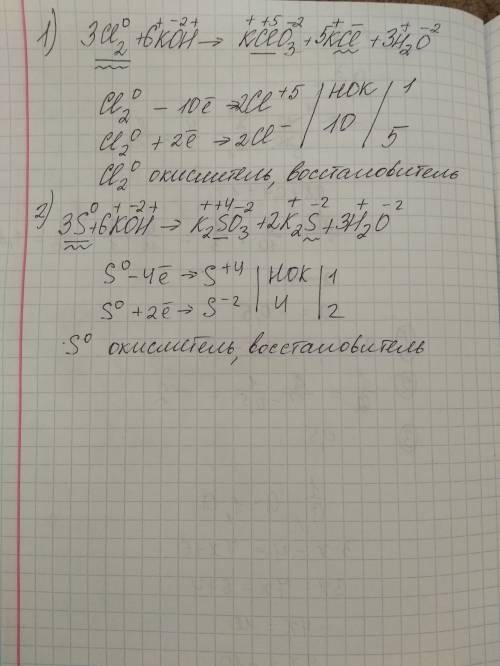 1) 3Cl₂⁰ + 6K⁺O⁻²H⁺ → K⁺Cl⁺⁵O₃⁻² + 5K⁺Cl⁻ + 3H₂⁺O⁻²
Cl₂⁰ − 10ē → 2Cl⁺⁵ | НОК | 1
Cl₂⁰ + 2ē → 2Cl⁻ | 10 | 5
Cl₂⁰ окислитель, восстановитель
2) 3S⁰ + 6K⁺O⁻²H⁺ → K₂⁺S⁺⁴O₃⁻² + 2K₂⁺S⁻² + 3H₂⁺O⁻²
S⁰ − 4ē → S⁺⁴ | НОК | 1
S⁰ + 2ē → S⁻² | 4 | 2
S⁰ окислитель, восстановитель